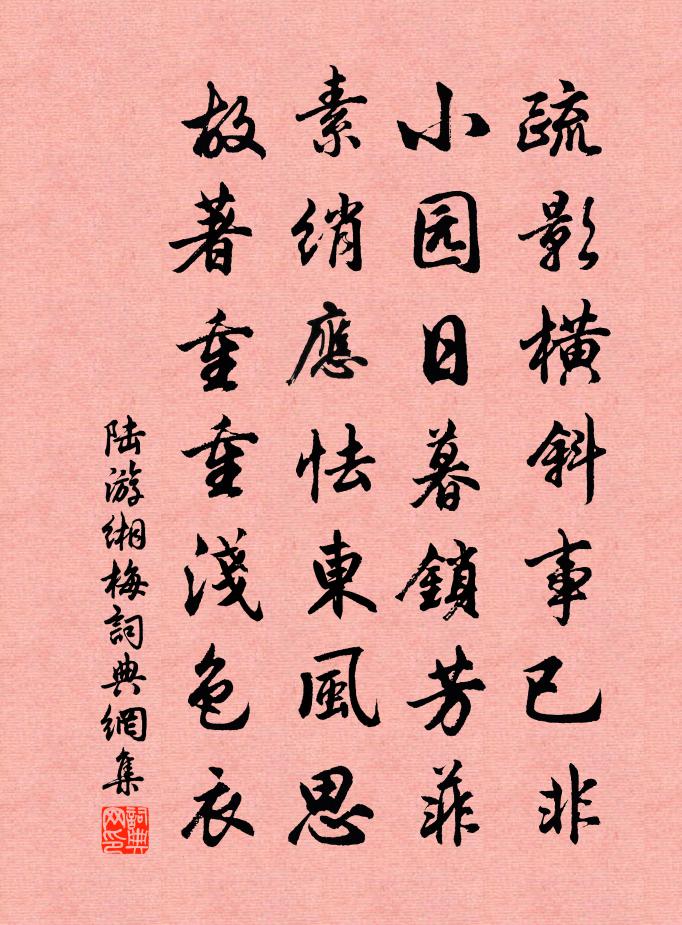 疏影橫斜事已非
小园日暮鎖芳菲
素綃應怯東風思
故著重重淺色衣
陆游缃梅詞典網集
詞典网印